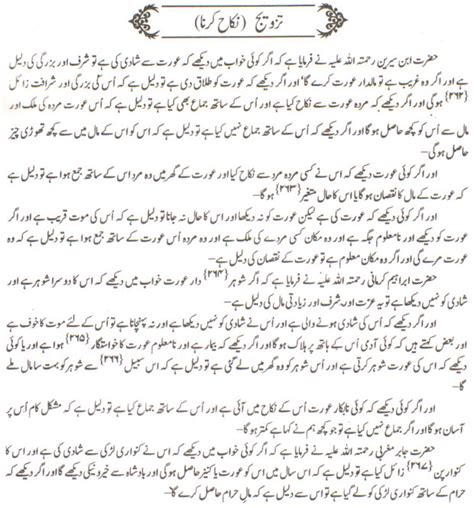 تزویج (نکاح کرنا)
حضرت ابن سیرین رحمتہ اللہ علیہ نے فرمایا ہے کہ اگر کوئی خواب میں دیکھے کہ عورت سے شادی کی ہے تو شرف اور بزرگی کی دلیل
ہے اور اگر وہ غریب ہے تو مالدار عورت کرے گا' اور اگر دیکھے کہ عورت کو طلاق دی ہے تو دلیل ہے کہ اُس کی بزرگی اور شرافت زائل
{۳۶۲} ہوگی اور اگر دیکھے کہ مردہ عورت سے نکاح کیا ہے اور اُس کے ساتھ جماع بھی کیا ہے تو دلیل ہے کہ اُس عورت مردہ کی ملک اور
مال سے اُس کو کچھ حاصل ہوگا اور اگر دیکھے کہ اُس کے ساتھ جماع نہیں کیا ہے تو دلیل ہے کہ اس کو اس کے مال میں سے کچھ تھوڑی چیز
حاصل ہوگی۔
اور اگر کوئی عورت دیکھے کہ اس نے کسی مردہ مرد سے نکاح کیا ہے اور عورت کے گھر میں وہ مرد اس کے ساتھ جمع ہوا ہے تو دلیل ہے
کہ عورت کے مال کا نقصان ہوگا یا اس کا حال متغیر {۳۶۳} ہوگا۔
اور اگر کوئی دیکھے کہ عورت کی ہے لیکن عورت کو نہ دیکھا اور اس کا حال نہ جانا تو دلیل ہے کہ اُس کی موت قریب ہے اور اگر
عورت دیکھے اور نامعلوم جگہ ہے اور وہ مکان کسی مردے کی ملک ہے اور وہ مردہ اُس عورت کے ساتھ جمع ہوا ہے تو دلیل ہے کہ وہ عورت
مرے گی اور اگر وہ مکان معلوم ہے تو عورت کے نقصان کی دلیل ہے۔
حضرت ابراہیم کرمانی رحمتہ اللہ علیہ نے فرمایا ہے کہ اگر شوہر {۳۶۴} دار عورت خواب میں دیکھے کہ اس کا دوسرا شوہر ہے اور
شادی کو نہیں دیکھا ہے تو یہ عزت اور شرف اور زیادتی مال کی دلیل ہے۔
اور اگر کوئی دیکھے کہ اُس کی شادی ہونے والی ہے اور اُس نے شادی کو نہیں دیکھا ہے اور نہ پہچانتا ہے تو اُس کے لئے موت کا خوف ہے
اور بعض کہتے ہیں کہ کوئی آدمی اُس کے ہاتھ پر ہلاک ہوگا اور اگر دیکھے کہ بیمار ہے اور نامعلوم عورت کا خواستگار {۳۶۵} ہوا ہے اور یا کوئی
دیکھے کہ اس کی عورت شوہر کرتی ہے اور اُس شوہر کو اپنے گھر میں لے گئی ہے تو دلیل ہے کہ اس سبیل {۳۶۶} سے شوہر کو بہت سا مال ملے
گا۔
اور اگر کوئی دیکھے کہ کوئی نابکار عورت اُس کے نکاح میں آئی ہے اور اُس کے ساتھ جماع کیا ہے تو دلیل ہے کہ مشکل کام اُس پر
آسان ہوگا اور اگر دیکھے کہ جماع نہیں کیا ہے تو جو کچھ ہم نے کہا ہے کمتر ہوگا۔
حضرت جابر مغربی رحمتہ اللہ علیہ نے فرمایا ہے کہ اگر کوئی خواب میں دیکھے کہ اس نے کنواری لڑکی سے شادی کی ہے اور اس کا
کنوارپن {۳۶۷} زائل کیا ہے تو دلیل ہے کہ اس سال میں اس کو عورت یا کنیز حاصل ہوگی اور بادشاہ سے خیر و نیکی دیکھے گا اور اگر دیکھے کہ
کنواری لڑکی کو گود میں لے گیا ہے تو دلیل ہے کہ مال حرام حاصل کرے گا۔